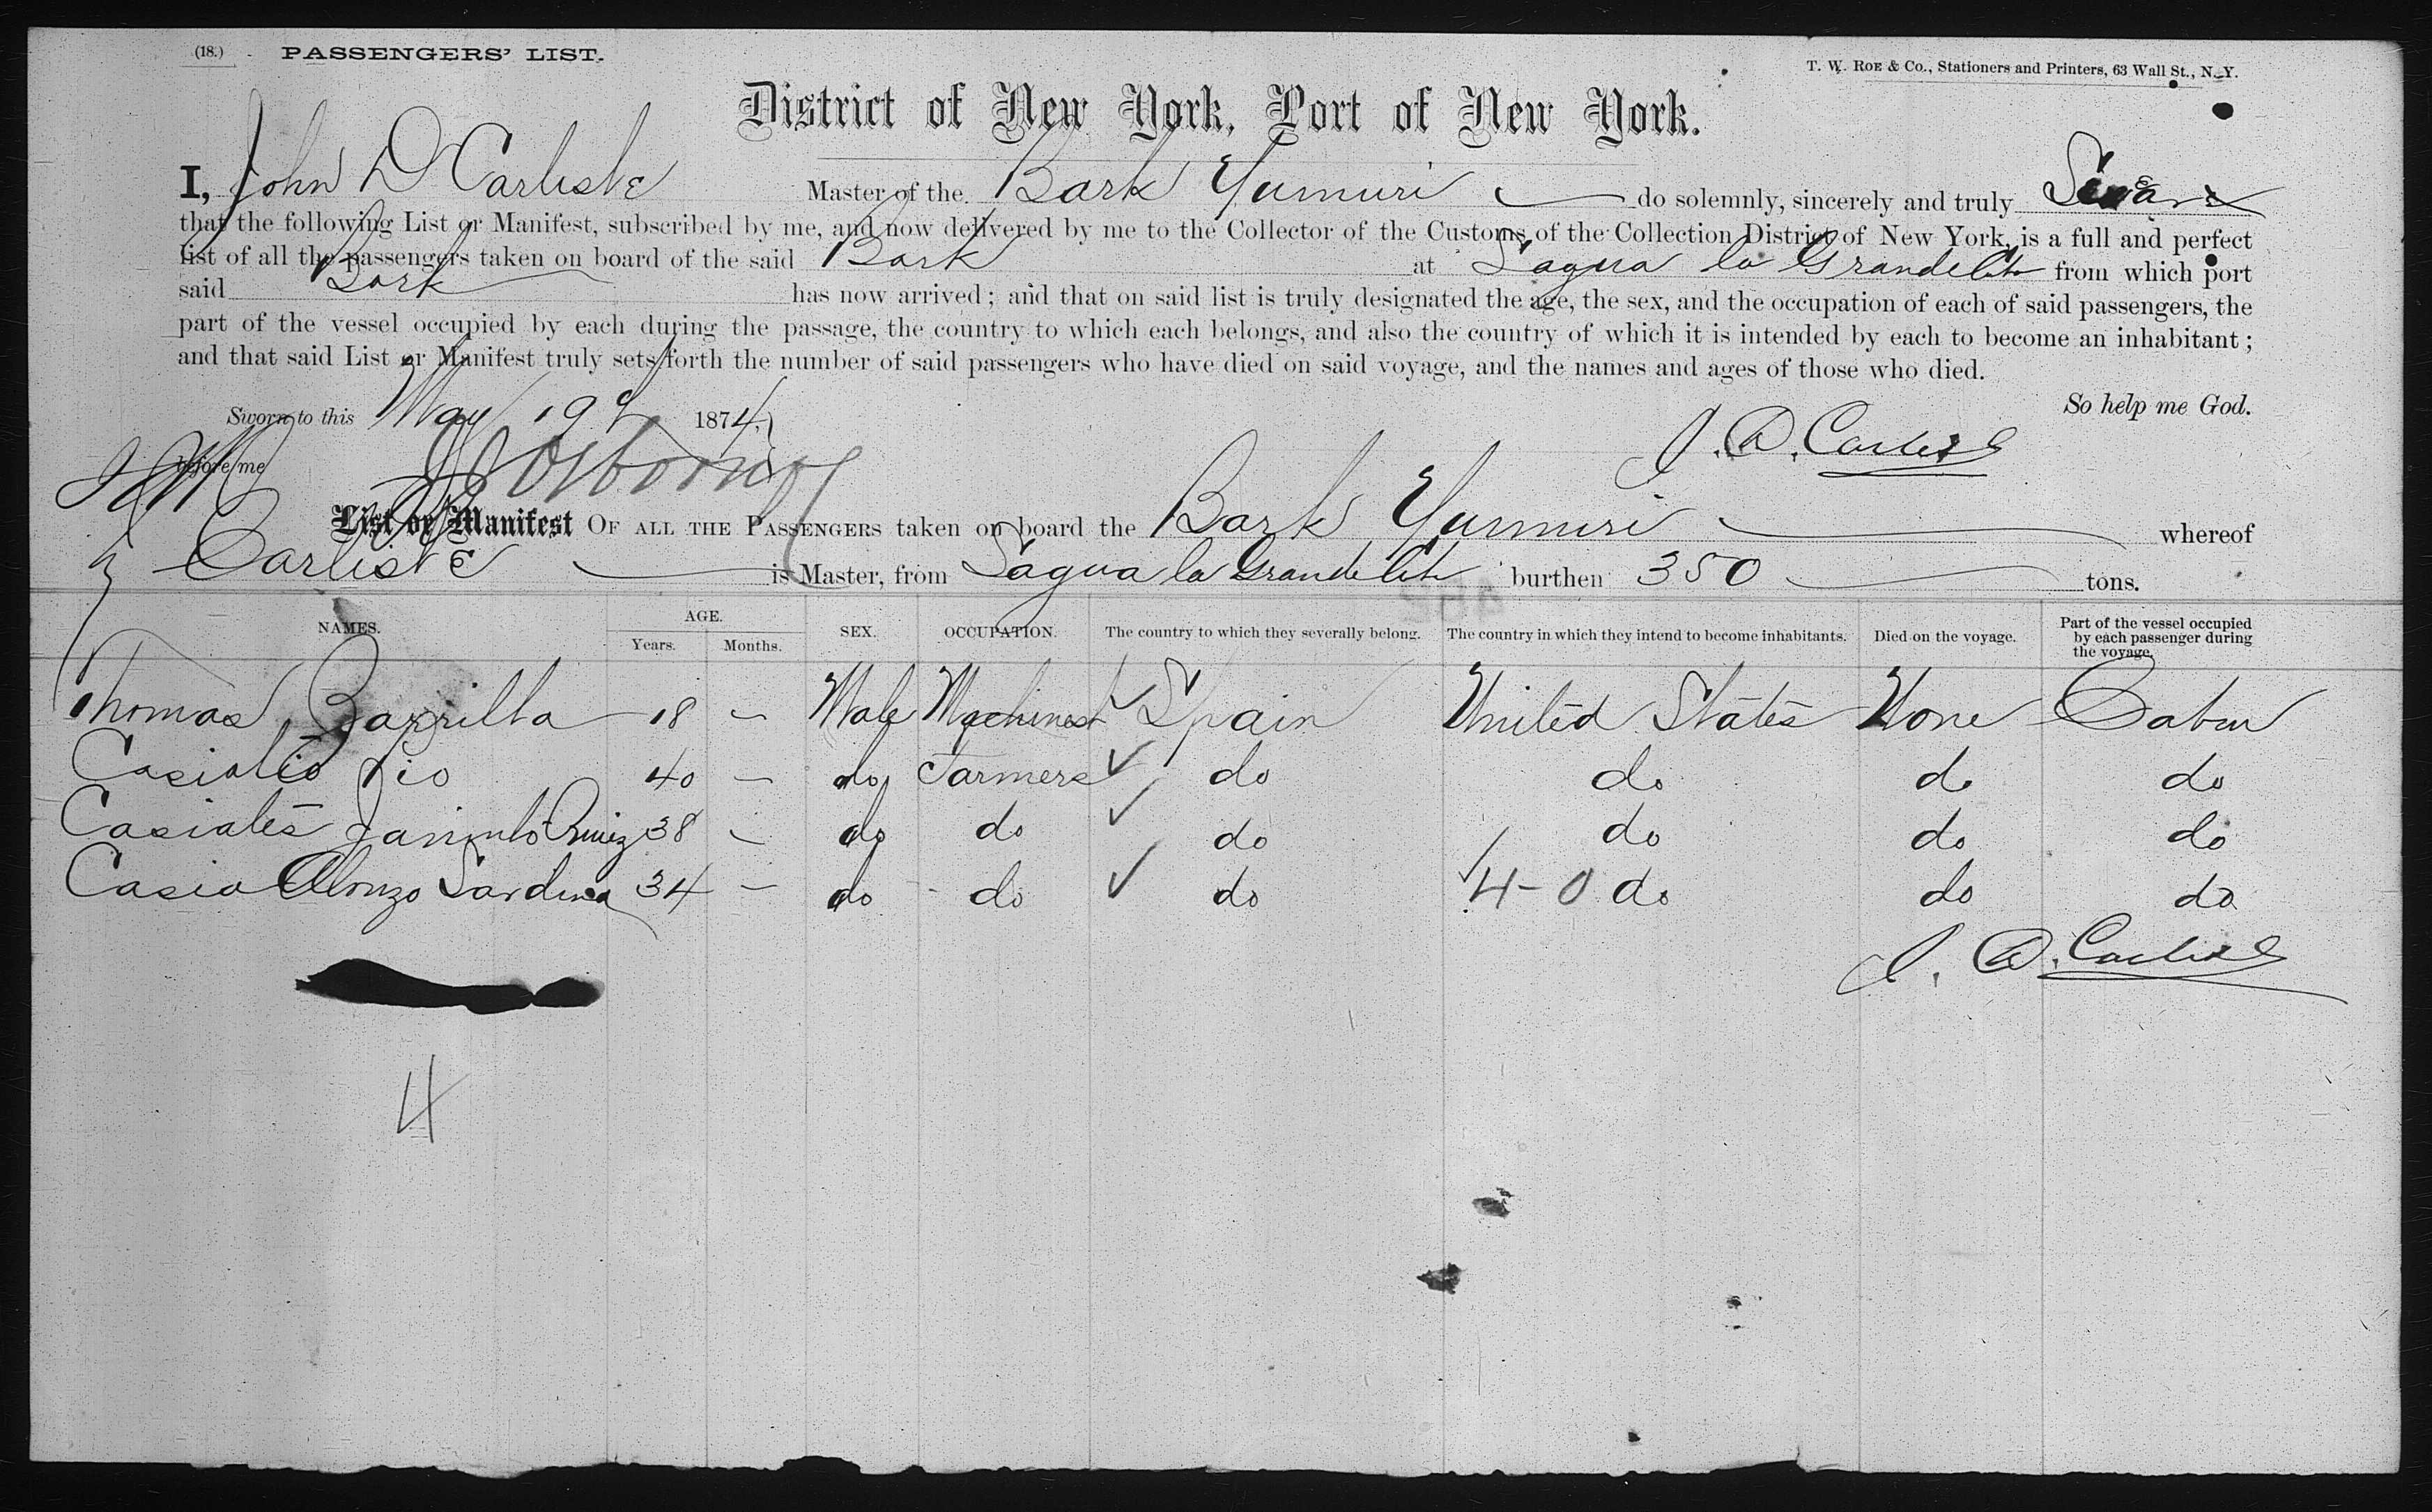 (18.) PASSENGERS' LIST.
T. W. ROE & Co., Stationers and Printers, 63 Wall St., N. Y.
District of New York, Port of New York.
I, John D Carlisle Master of the Bark Yumuri do solemnly, sincerely and truly Swear
that the following List or Manifest, subscribed by me, and now delivered by me to the Collector of the Customs of the Collection District of New York, is a full and perfect
list of all the passengers taken on board of the said Bark at Sagua la Grande from which port
said Bark has now arrived; and that on said list is truly designated the age, the sex, and the occupation of each of said passengers, the
part of the vessel occupied by each during the passage, the country to which each belongs, and also the country of which it is intended by each to become an inhabitant;
and that said List or Manifest truly sets forth the number of said passengers who have died on said voyage, and the names and ages of those who died.
So help me God.
Sworn to this May 19th 1874,
J. D. Carlisle
before me Osborn
List or Manifest OF ALL THE PASSENGERS taken on board the Bark Yumuri whereof
Carlisle is Master, from Sagua la Grande burthen 350 tons.
NAMES. AGE. Years. Months. SEX. OCCUPATION. The country to which they severally belong. The country in which they intend to become inhabitants. Died on the voyage. Part of the vessel occupied by each passenger during the voyage.
Thomas 18 - Male Machinest ✓ Spain United States None Cabin
40 - do Farmers ✓ do do do do
38 - do do ✓ do do do do
Casia Alonzo Sardina 34 - do do ✓ do 4-0 do do do
J. D. Carlisle
4